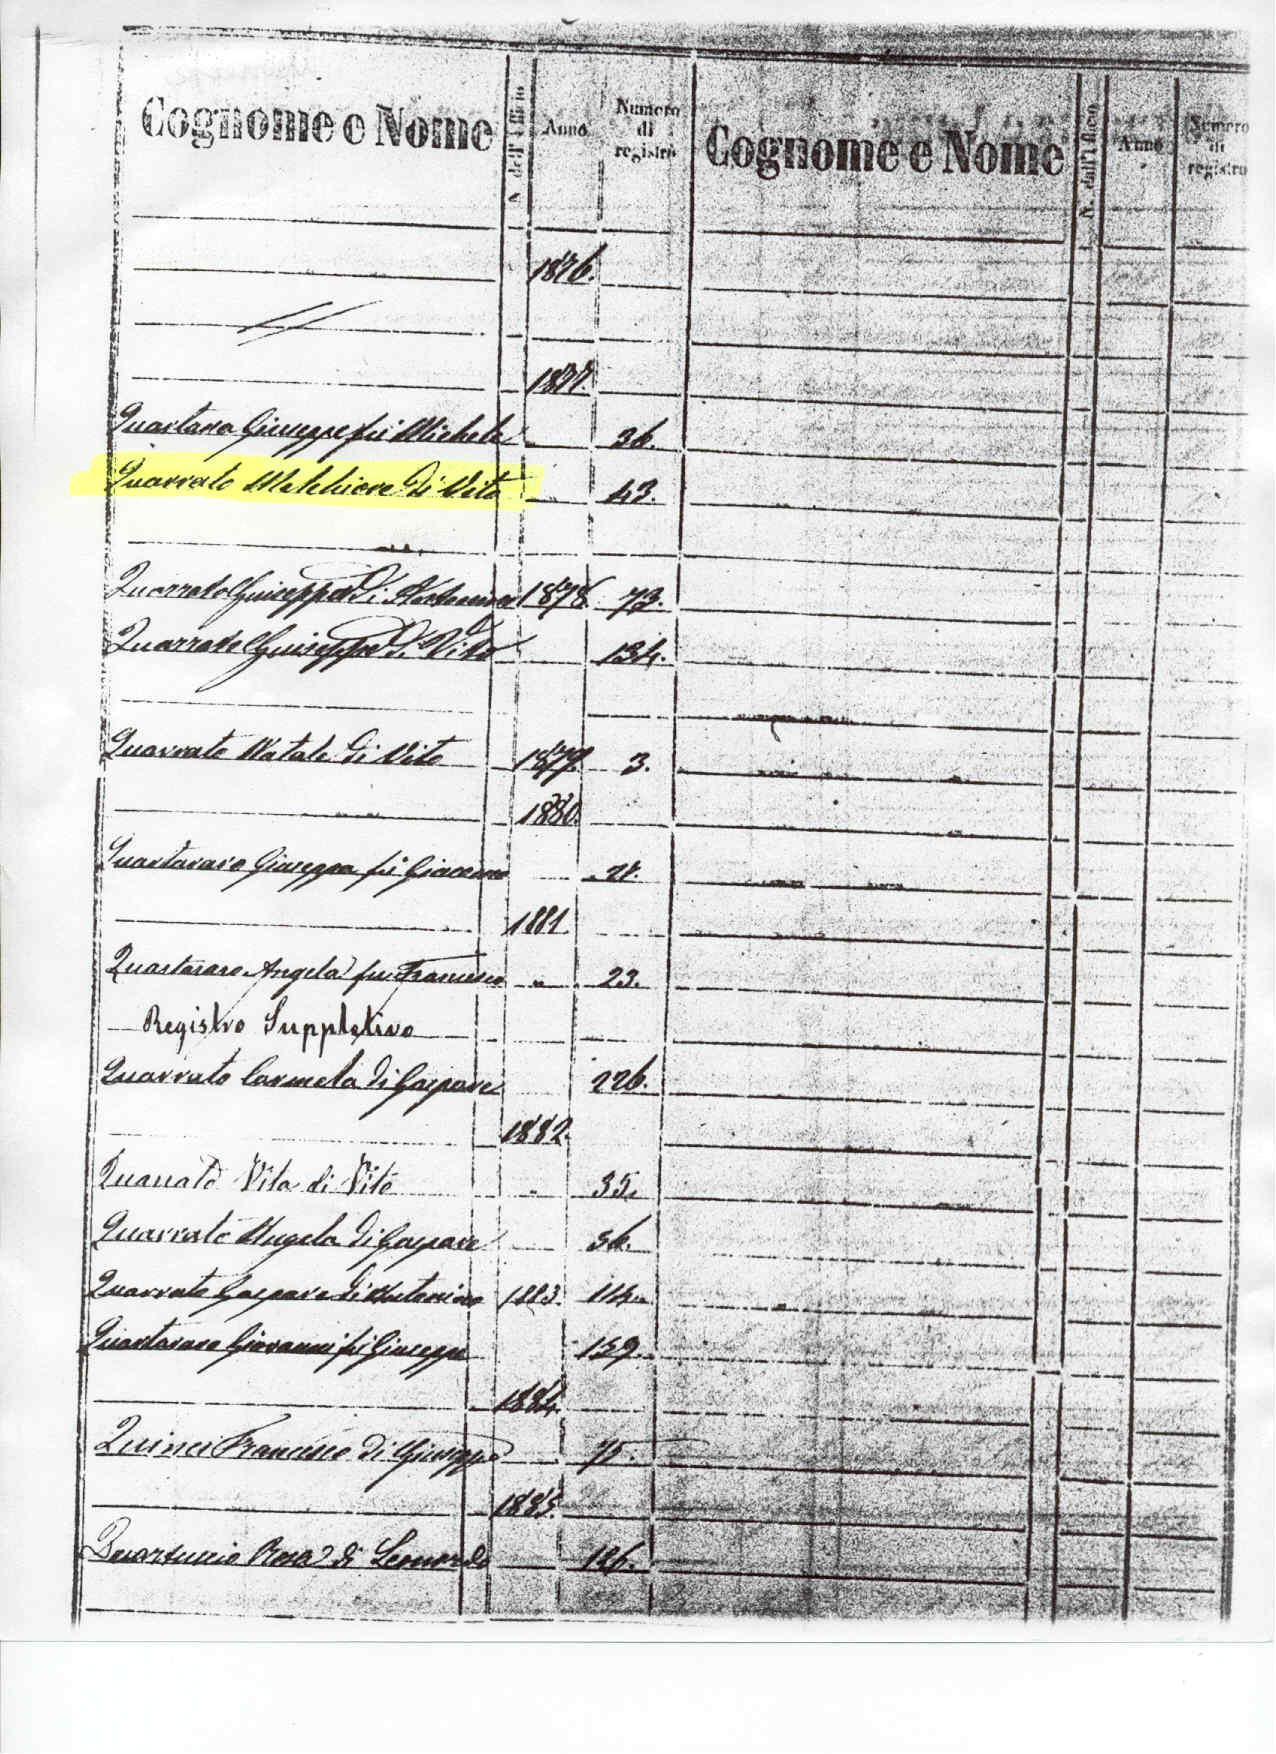 Cognome e Nome N. dell'Ufficio Anno Numero di registro Cognome e Nome N. dell'Ufficio Anno Numero di registro
1876.
1877.
Quartana Giuseppe fu Michele 36.
Quarrato Melchiore di Vito 43.
Quarrato Giuseppe di 1878. 73.
Quarrato Giuseppe di Vito 134.
Quarrato Natale di Vito 1879. 3.
1880.
Quartararo Giuseppa fu Giacomo 21.
1881
Quartararo Angela fu Francesco " 23.
Registro Suppletivo
Quarrato Carmela di Gaspare 226.
1882.
Quarrato Vita di Vito " 35.
Quarrato Angela di Gaspare 56.
Quarrato Gaspare di Antonino 1883. 114.
Quartararo Giovanni fu Giuseppe 159.
1884.
Quinci Francesco di Giuseppe 75.
1885.
Quartuccio Rosa di Leonardo 126.